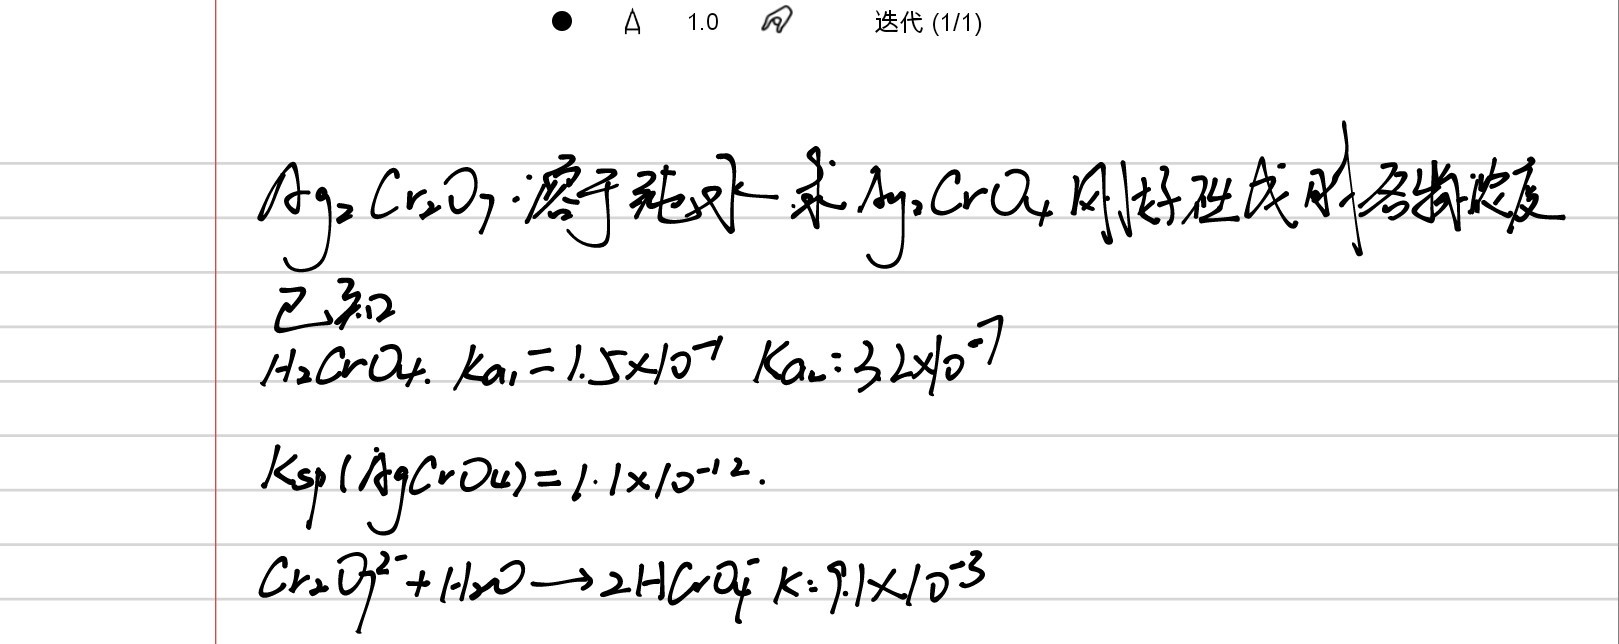 1.0 迭代 (1/1)
Ag₂Cr₂O₇溶于纯水 求Ag₂CrO₄刚好生成时各物浓度
已知
H₂CrO₄. Ka₁=1.5×10⁻¹ Ka₂:3.2×10⁻⁷
Ksp(AgCrO₄)=1.1×10⁻¹².
Cr₂O₇²⁻+H₂O→2HCrO₄⁻ K:9.1×10⁻³